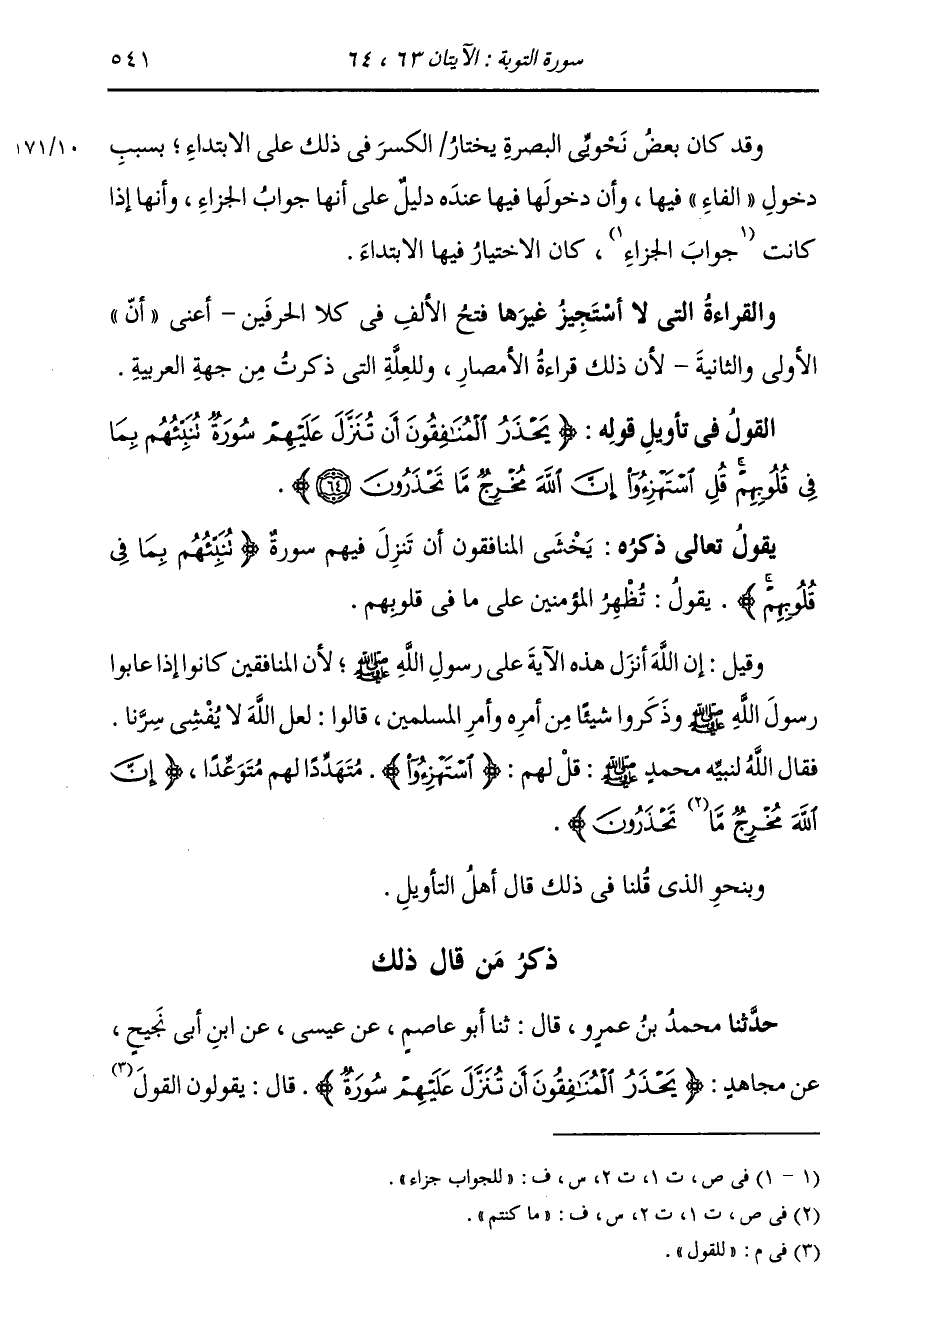 سورة التوبة : الآيتان ٦٣ ، ٦٤ ٥٤١
وقد كان بعضُ نَحْوِيِّى البصرةِ يختارُ/ الكسرَ فى ذلك على الابتداءِ ؛ بسببِ ١٧١/١٠
دخولِ « الفاءِ » فيها ، وأن دخولَها فيها عندَه دليلٌ على أنها جوابُ الجزاءِ ، وأنها إذا
كانت (١جوابَ الجزاءِ١) ، كان الاختيارُ فيها الابتداءَ .
والقراءةُ التى لا أسْتَجيزُ غيرَها فتحُ الألفِ فى كلا الحرفَين – أعنى « أنّ »
الأولى والثانيةَ – لأن ذلك قراءةُ الأمصارِ ، وللعِلَّةِ التى ذكرتُ مِن جهةِ العربيةِ .
القولُ فى تأويلِ قولِه : ﴿ يَحْذَرُ ٱلْمُنَـٰفِقُونَ أَن تُنَزَّلَ عَلَيْهِمْ سُورَةٌ نُنَبِّئُهُم بِمَا
فِى قُلُوبِهِمْ ۚ قُلِ ٱسْتَهْزِءُوٓا إِنَّ ٱللَّهَ مُخْرِجٌ مَّا تَحْذَرُونَ ﴿٦٤﴾ ﴾ .
يقولُ تعالى ذكرُه : يَخْشَى المنافقون أن تَنزِلَ فيهم سورةٌ ﴿ نُنَبِّئُهُم بِمَا فِى
قُلُوبِهِمْ ۚ ﴾ . يقولُ : تُظْهِرُ المؤمنين على ما فى قلوبِهم .
وقيل : إن اللَّهَ أنزَل هذه الآيةَ على رسولِ اللَّهِ ﷺ ؛ لأن المنافقين كانوا إذا عابوا
رسولَ اللَّهِ ﷺ وذَكَروا شيئًا مِن أمرِه وأمرِ المسلمين ، قالوا : لعل اللَّهَ لا يُفْشِى سِرَّنا .
فقال اللَّهُ لنبيِّه محمدٍ ﷺ : قلْ لهم : ﴿ ٱسْتَهْزِءُوٓا ﴾ . مُتَهَدِّدًا لهم مُتَوَعِّدًا ، ﴿ إِنَّ
ٱللَّهَ مُخْرِجٌ مَّا(٢) تَحْذَرُونَ ﴾ .
وبنحوِ الذى قُلنا فى ذلك قال أهلُ التأويلِ .
ذكرُ مَن قال ذلك
حدَّثنا محمدُ بنُ عمرٍو ، قال : ثنا أبو عاصمٍ ، عن عيسى ، عن ابنِ أبى نَجيحٍ ،
عن مجاهدٍ : ﴿ يَحْذَرُ ٱلْمُنَـٰفِقُونَ أَن تُنَزَّلَ عَلَيْهِمْ سُورَةٌ ﴾ . قال : يقولون القولَ(٣)
(١ – ١) فى ص ، ت ١، ت ٢، س ، ف : « للجواب جزاء » .
(٢) فى ص ، ت ١، ت ٢، س ، ف : « ما كنتم » .
(٣) فى م : « للقول » .